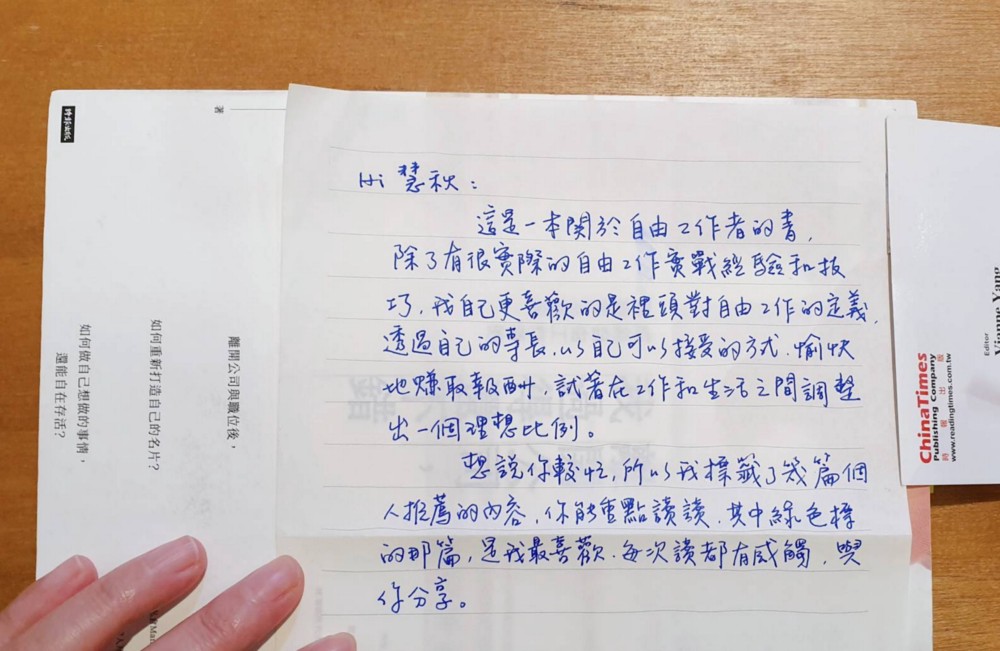 Hi 慧秋：
這是一本關於自由工作者的書，
除了有很實際的自由工作實戰經驗和技
巧，我自己更喜歡的是裡頭對自由工作的定義，
透過自己的專長，以自己可以接受的方式，愉快
地賺取報酬，試著在工作和生活之間調整
出一個理想比例。
想說你較忙，所以我標籤了幾篇個
人推薦的內容，你能重點讀讀，其中綠色標
的那篇，是我最喜歡，每次讀都有感觸，與
你分享。
著
時報出版
離開公司與職位後，
如何重新打造自己的名片？
如何做自己想做的事情，
還能自在存活？
ChinaTimes
Publishing Company
時報出版
www.readingtimes.com.tw
Editor